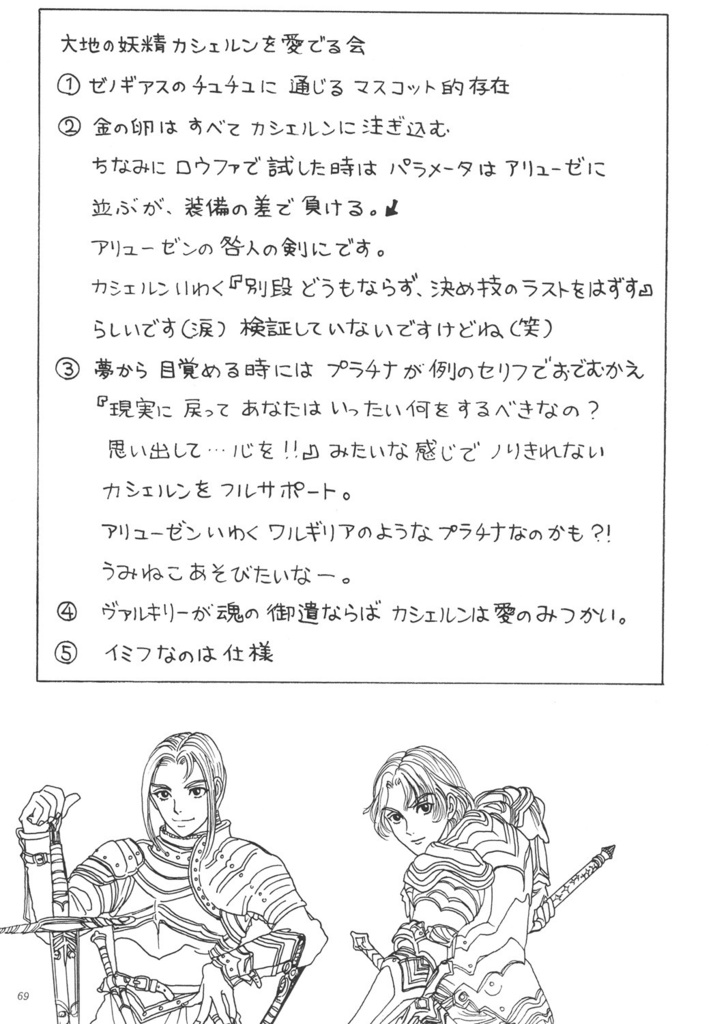 大地の妖精カシェルンを愛でる会
① ゼノギアスのチュチュに 通じる マスコット的存在
② 金の卵は すべて カシェルンに注ぎ込む
ちなみに ロウファで試した時は パラメータは アリューゼに
並ぶが、装備の差で負ける。↙
アリューゼンの咎人の剣にです。
カシェルンいわく『別段 どうもならず、決め技のラストをはずす』
らしいです(涙) 検証していないですけどね(笑)
③ 夢から 目覚める時には プラチナが例のセリフでおでむかえ
『現実に 戻って あなたは いったい何をするべきなの?
思い出して…心を!!』みたいな感じで ノりきれない
カシェルンを フルサポート。
アリューゼンいわく ワルギリアのような プラチナなのかも?!
うみねこ あそびたいなー。
④ ヴァルキリーが魂の 御遣ならば カシェルンは愛のみつかい。
⑤ イミフなのは仕様
69